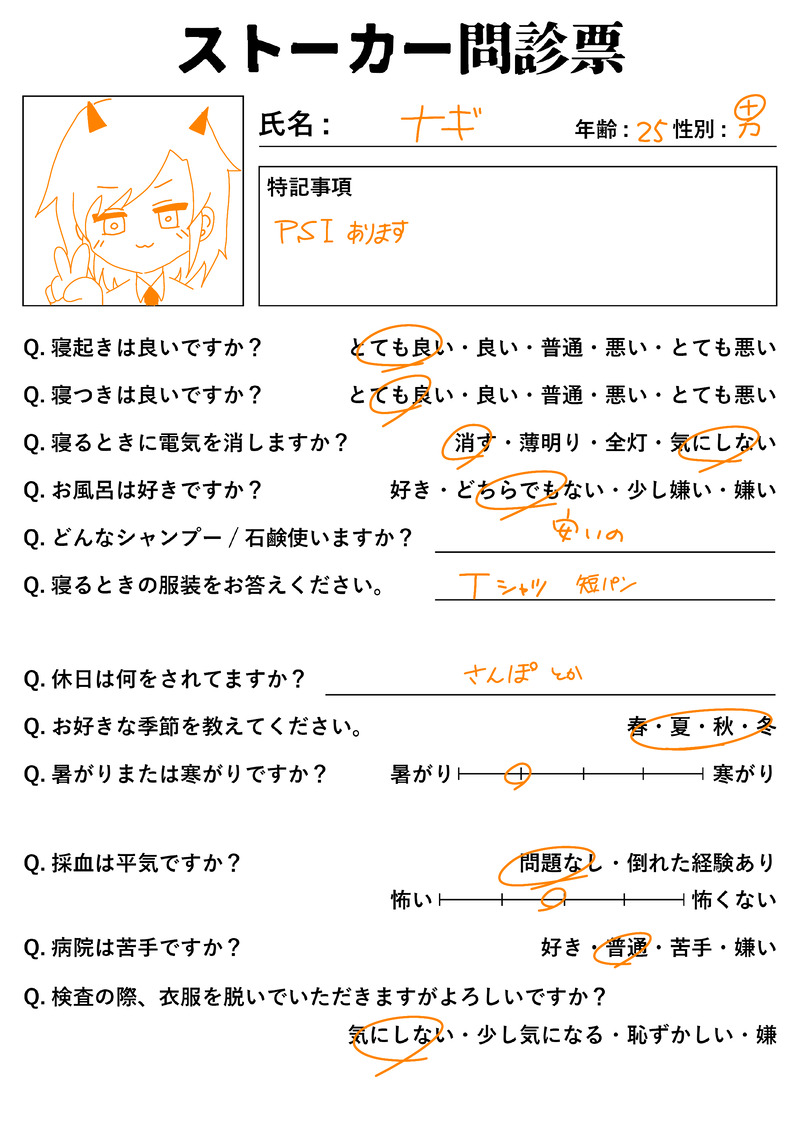 ストーカー問診票
氏名： ナギ 年齢：25 性別：男
特記事項
PSI あります
Q. 寝起きは良いですか？ とても良い・良い・普通・悪い・とても悪い
Q. 寝つきは良いですか？ とても良い・良い・普通・悪い・とても悪い
Q. 寝るときに電気を消しますか？ 消す・薄明り・全灯・気にしない
Q. お風呂は好きですか？ 好き・どちらでもない・少し嫌い・嫌い
Q. どんなシャンプー / 石鹸使いますか？ 安いの
Q. 寝るときの服装をお答えください。 Tシャツ 短パン
Q. 休日は何をされてますか？ さんぽ とか
Q. お好きな季節を教えてください。 春・夏・秋・冬
Q. 暑がりまたは寒がりですか？ 暑がり 寒がり
Q. 採血は平気ですか？ 問題なし・倒れた経験あり
怖い 怖くない
Q. 病院は苦手ですか？ 好き・普通・苦手・嫌い
Q. 検査の際、衣服を脱いでいただきますがよろしいですか？
気にしない・少し気になる・恥ずかしい・嫌